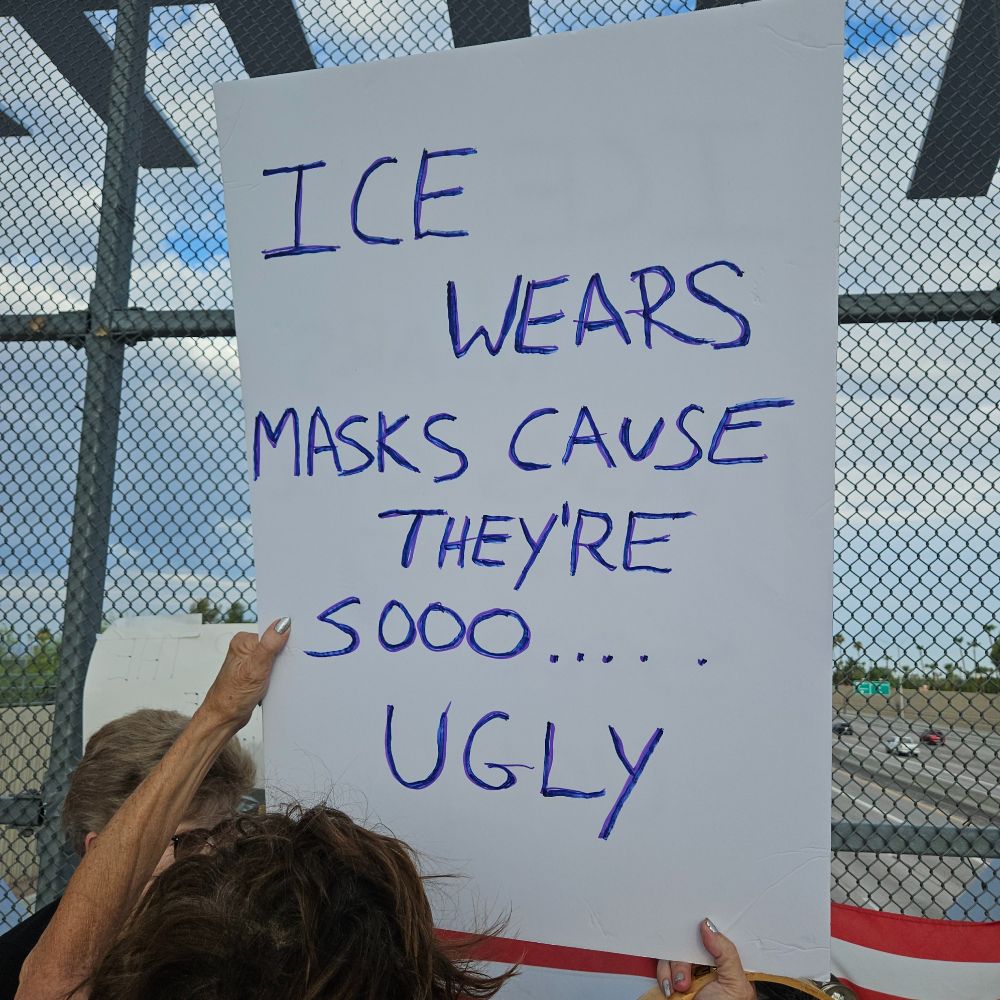 ICE
WEARS
MASKS CAUSE
THEY'RE
SOOO.....
UGLY